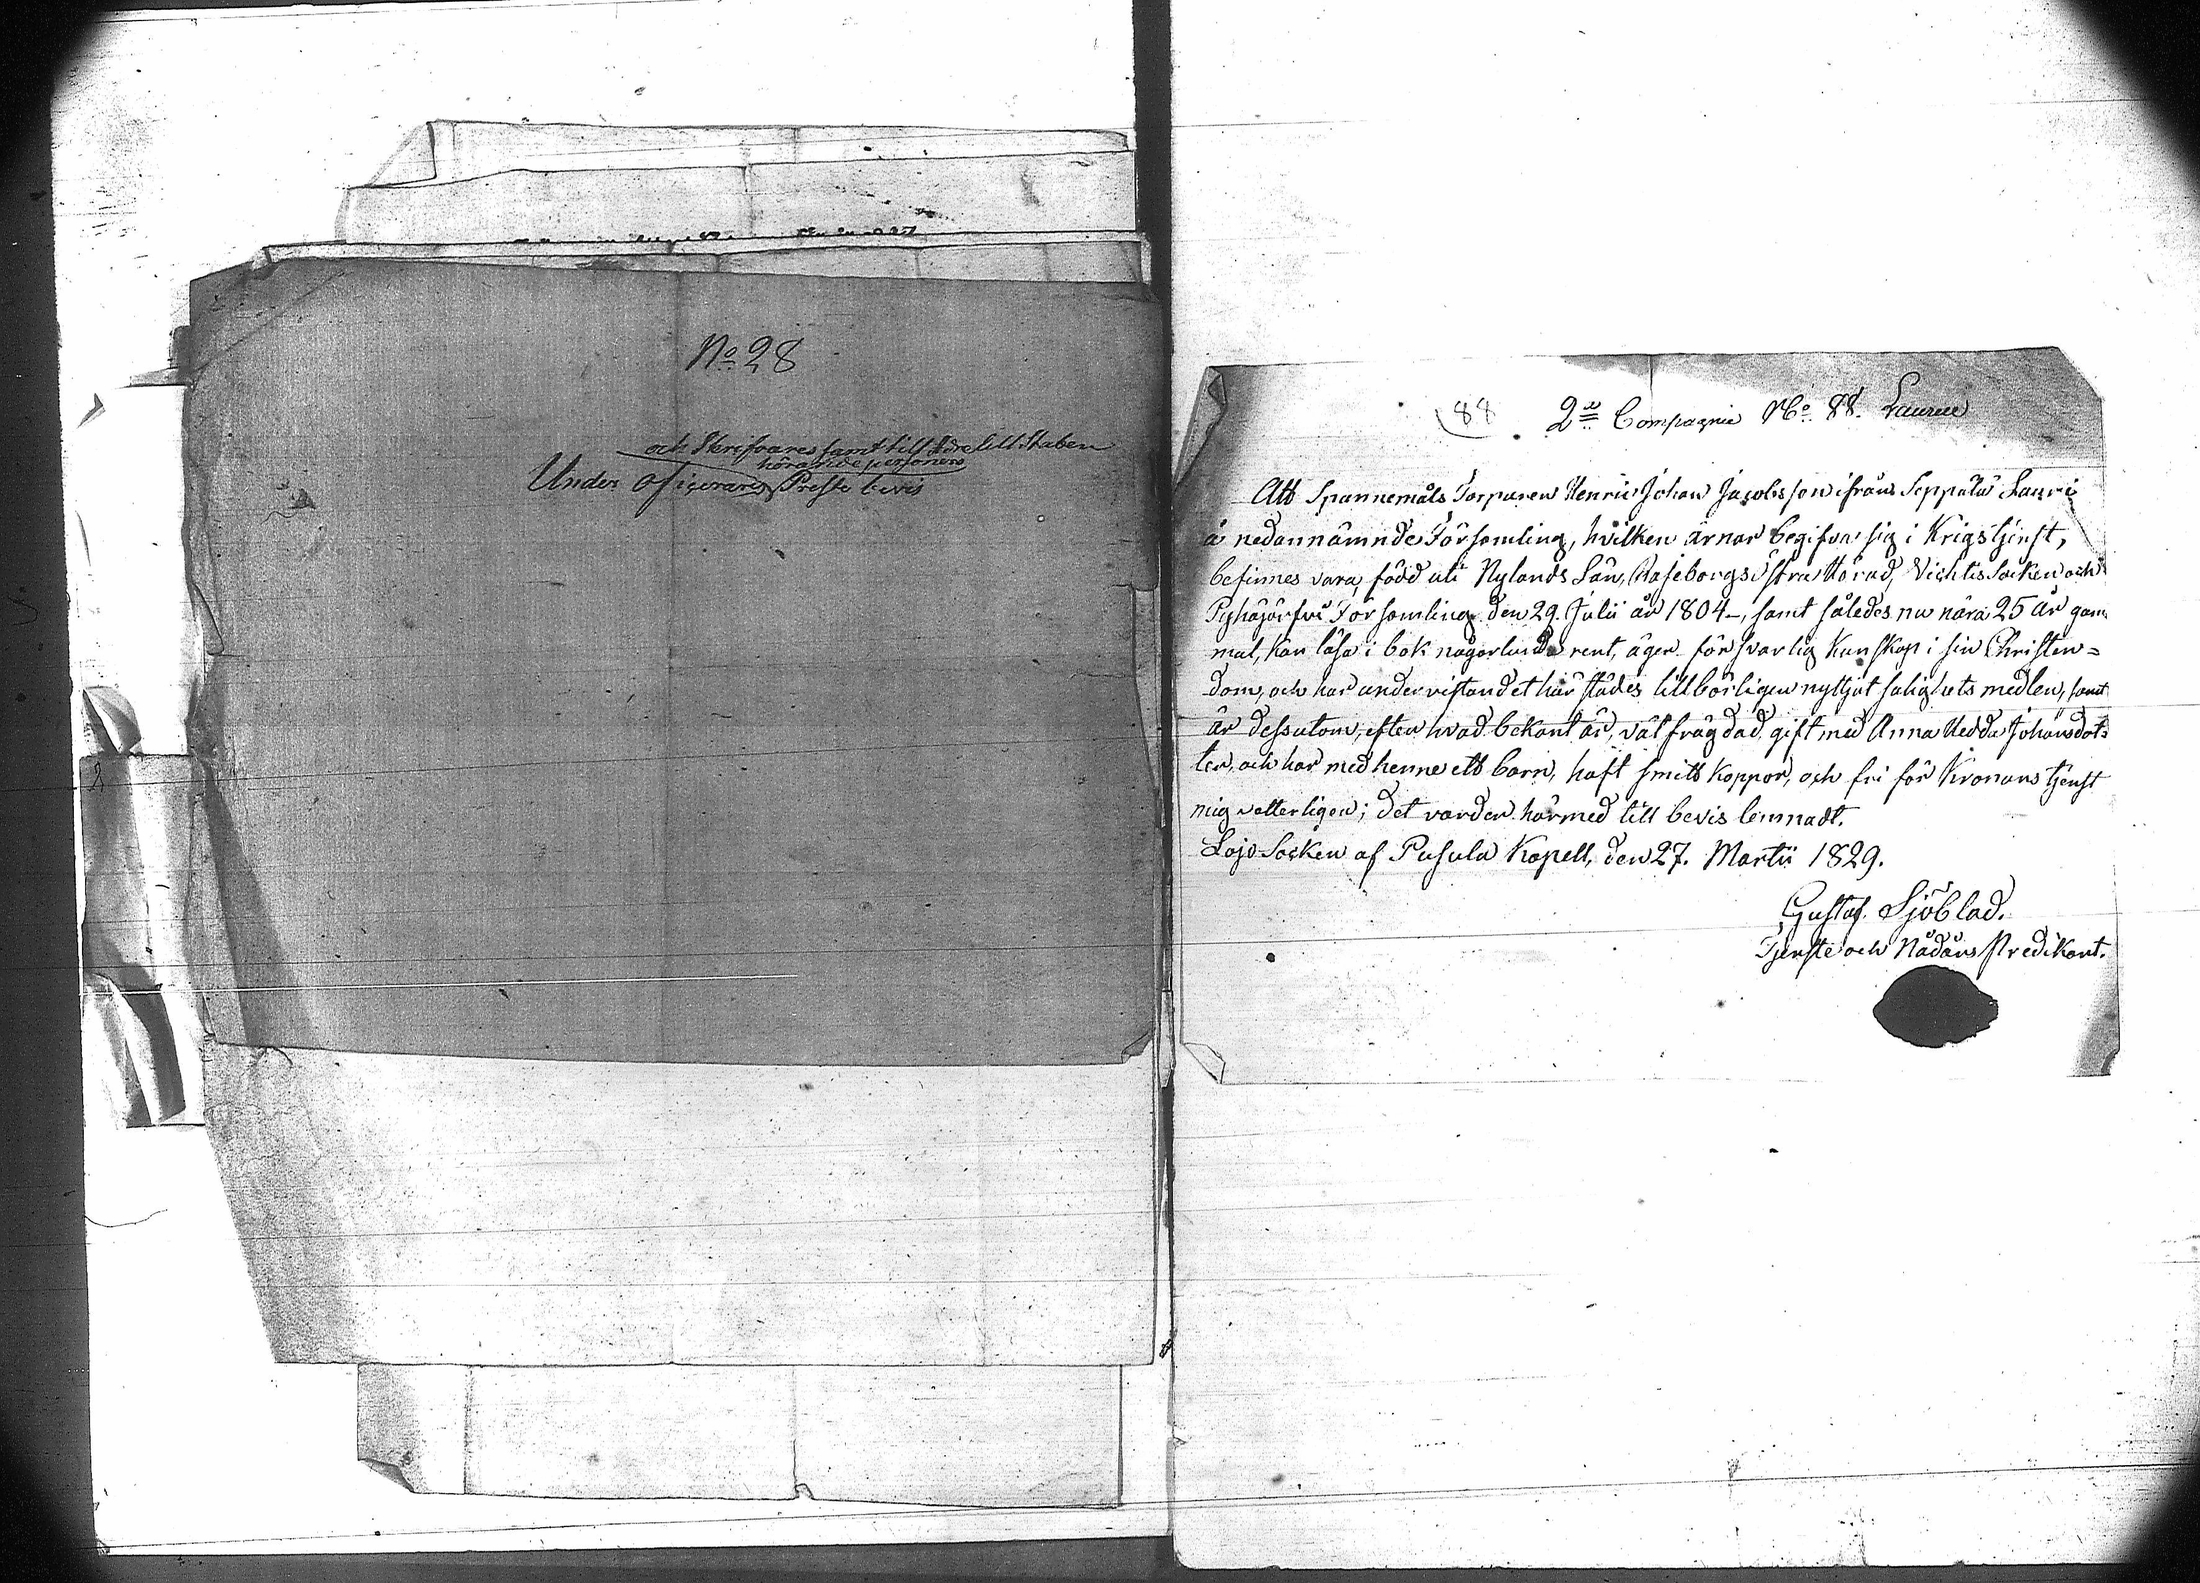 No 28
och Skrifvares samt till Staben
hörande personers
Under officerares Preste bevis
88 2ª Compagnie No 88. Laurene
Att Spannemåls Torparen Henric Johan Jacobsson ifrån Seppälä Lauri
å nedannämnde Församling, hvilken ärnar begifva sig i Krigstjenst,
befinnes vara född uti Nylands Län, Raseborgs östra Härad, Vichtis Socken och
Pyhäjärfvi Församling den 29. Julii år 1804, samt således nu nära 25 år gam
mal, kan läsa i bok någorlunda rent, äger försvarlig kunskap i sin Christen=
dom, och har under vistandet härstädes tillbörligen nyttjat salighets medlen, samt
är dessutom, efter hvad bekant är, väl frägdad, gift med Anna Hedda Johansdot=
ter, och har med henne ett barn, haft smitt koppor, och fri för Kronans tjenst
mig vetterligen; det varder härmed till bevis lemnadt.
Lojo Socken af Pusula Kapell, den 27. Martii 1829.
Gustaf Sjöblad.
Tjenste och Nådårs Predikant.